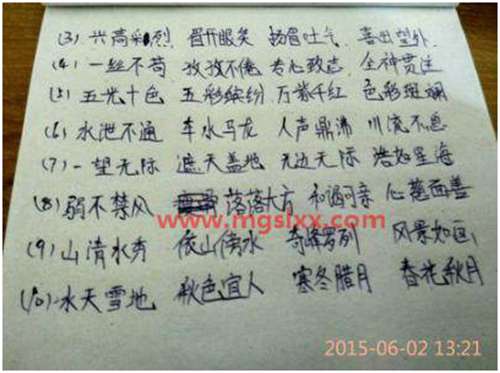 (3) 兴高采烈 眉开眼笑 扬眉吐气 喜出望外
(4) 一丝不苟 孜孜不倦 专心致志 全神贯注
(5) 五光十色 五彩缤纷 万紫千红 色彩斑斓
(6) 水泄不通 车水马龙 人声鼎沸 川流不息
(7) 一望无际 遮天盖地 无边无际 浩如星海
(8) 弱不禁风 落落大方 和蔼可亲 心慈面善
www.mgslxx.com
(9) 山清水秀 依山傍水 奇峰罗列 风景如画
(10) 水天雪地 秋色宜人 寒冬腊月 春花秋月
2015-06-02 13:21